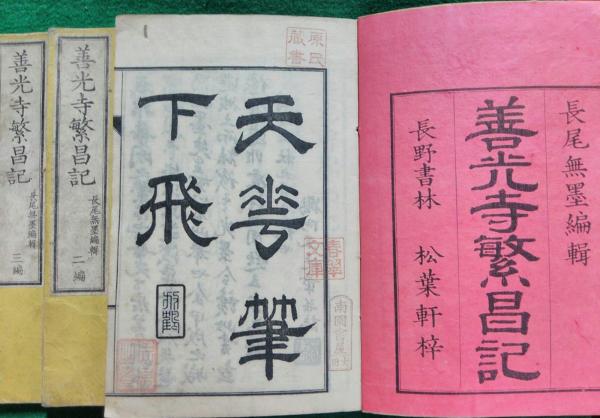 長尾無墨編輯
善光寺繁昌記
長野書林 松葉軒梓
原氏
蔵書
天花筆
下飛
春翠
文庫
善光寺繁昌記
長尾無墨編輯
二編
善光寺繁昌記
長尾無墨編輯
三編